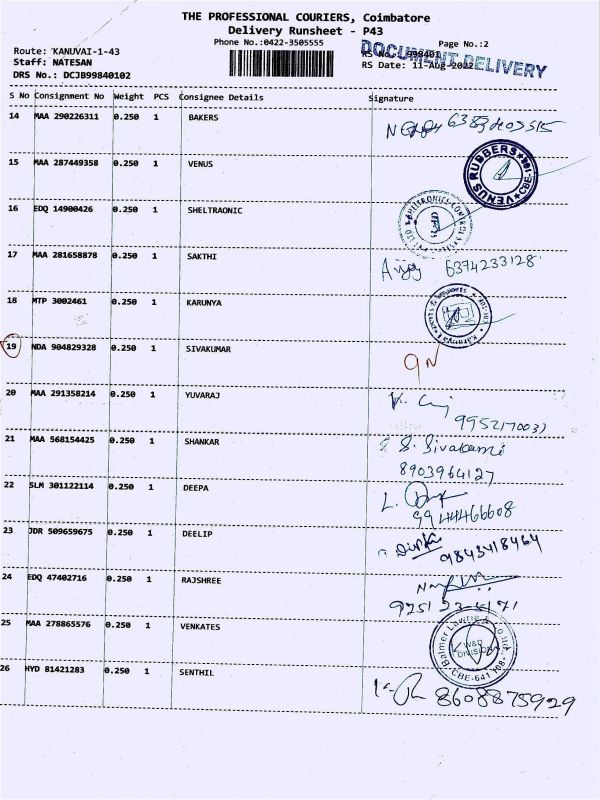 THE PROFESSIONAL COURIERS, Coimbatore
Delivery Runsheet - P43
Phone No.:0422-3505555
Page No.:2
Route: KANUVAI-1-43
Staff: NATESAN
DRS No.: DCJB99840102
RS No.: 998401
RS Date: 11-Aug-2022
DOCUMENT DELIVERY
S No Consignment No Weight PCS Consignee Details Signature
14 MAA 290226311 0.250 1 BAKERS
15 MAA 287449358 0.250 1 VENUS VENUS RUBBERS CBE
16 EDQ 14900426 0.250 1 SHELTRAONIC
17 MAA 281658878 0.250 1 SAKTHI 6374233128
18 MTP 3002461 0.250 1 KARUNYA
19 NDA 904829328 0.250 1 SIVAKUMAR
20 MAA 291358214 0.250 1 YUVARAJ
21 MAA 568154425 0.250 1 SHANKAR S. Sivakami
8903964127
22 SLM 301122114 0.250 1 DEEPA
9944466608
23 JDR 509659675 0.250 1 DEELIP 9843418464
24 EDQ 47402716 0.250 1 RAJSHREE
25 MAA 278865576 0.250 1 VENKATES Balmer Lawrie & Co. Ltd. W&D DIVISION CBE-641 108
26 HYD 81421283 0.250 1 SENTHIL 8608875929